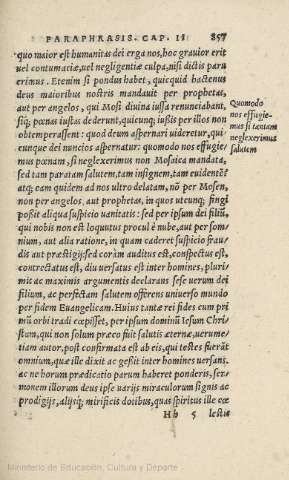 PARAPHRASIS. CAP. II 857
quo maior est humanitas dei erga nos, hoc grauior erit
uel contumaciæ, uel negligentiæ culpa, nisi dictis paru
erimus. Etenim si pondus habet, quicquid hactenus
deus maioribus nostris mandauit per prophetas,
aut per angelos, qui Mosi diuina iussa renunciabant,
siq; pœnas iustas dederunt, quicunq; iussis per illos non
obtemperassent: quod deum aspernari uideretur, qui
cunque dei nuncios aspernatur: quomodo nos effugie-
mus pœnam, si neglexerimus non Mosaica mandata,
sed tam paratam salutem, tam insignem, tam euidentē?
atq; eam quidem ad nos ultro delatam, nō per Mosen,
non per angelos, aut prophetas, in quos utcunq; fingi
poßit aliqua suspicio uanitatis: sed per ipsum dei filiū,
qui nobis non est loquutus procul è nube, aut per som-
nium, aut alia ratione, in quam caderet suspicio frau/
dis aut præstigij: sed coràm auditus est, conspectus est,
contrectatus est, diu uersatus est inter homines, pluri-
mis ac maximis argumentis declarans sese uerum dei
filium, ac perfectam salutem offerens uniuerso mundo
per fidem Euangelicam. Huius tantæ rei fides cum pri
mū orbi tradi cœpisset, per ipsum dominū Iesum Chri/
stum, qui non solum præco fuit salutis æternæ, uerume-
tiam autor, post confirmata est ab eis, qui testes fuerāt
omnium, quæ ille dixit ac geßit inter homines uersans.
ac ne horum prædicatio parum haberet ponderis, ser-
monem illorum deus ipse uarijs miraculorum signis ac
prodigijs, alijsq; mirificis dotibus, quas spiritus ille cœ
Hh 5 lestis
Quomodo
nos effugie-
mus si tantam
neglexerimus
salutem
Ministerio de Educación, Cultura y Deporte